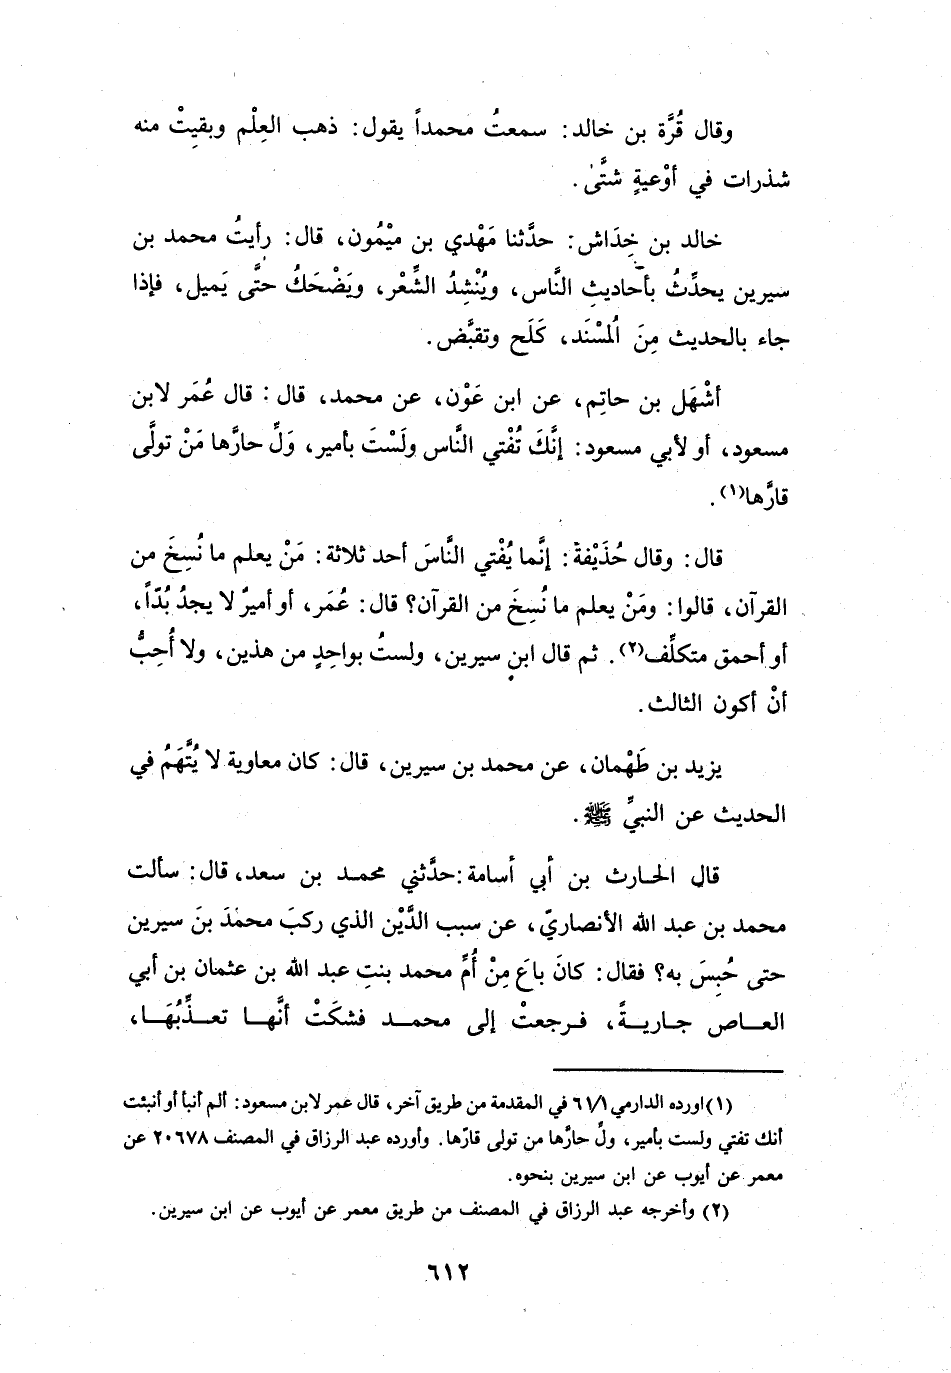 وقال قُرَّة بن خالد: سمعتُ محمداً يقول: ذهب العِلْم وبقيتْ منه
شذرات في أوْعيةٍ شتَّىٰ.
خالد بن خِدَاش: حدَّثنا مَهْدي بن ميْمُون، قال: رأيتُ محمد بن
سيرين يحدِّثُ بأحاديثِ النَّاس، ويُنْشِدُ الشِّعْر، ويَضْحَكُ حتَّى يَميل، فإذا
جاء بالحديث مِنَ اُلمسْنَد، كَلَح وتقبَّض.
أشْهَل بن حاتِم، عن ابن عَوْن، عن محمد، قال: قال عُمَر لابن
مسعود، أو لأبي مسعود: إنَّكَ تُفْتي النَّاس ولَسْتَ بأمير، وَلِّ حارَّها مَنْ تولَّى
قارَّها(١).
قال: وقال حُذَيْفة: إنَّما يُفْتي النَّاسَ أحد ثلاثة: مَنْ يعلم ما نُسِخَ من
القرآن، قالوا: ومَنْ يعلم ما نُسِخَ من القرآن؟ قال: عُمَر، أو أميرٌ لا يجدُ بُدّاً،
أو أحمق متكلِّف(٢). ثم قال ابن سيرين، ولستُ بواحِدٍ من هذين، ولا أُحِبُّ
أنْ أكون الثالث.
يزيد بن طَهْمان، عن محمد بن سيرين، قال: كان معاوية لا يُتَّهَمُ في
الحديث عن النبيِّ ﷺ.
قال الحارث بن أبي أسامة: حدَّثني محمد بن سعد، قال: سألت
محمد بن عبد الله الأنصاريّ، عن سبب الدَّيْن الذي ركبَ محمدَ بنَ سيرين
حتى حُبِسَ به؟ فقال: كانَ باعَ مِنْ أُمِّ محمد بنتِ عبد الله بن عثمان بن أبي
العاص جاريةً، فرجعتْ إلى محمد فشكَتْ أنَّها تعذِّبُهَا،
(١) اورده الدارمي ٦١/١ في المقدمة من طريق آخر، قال عمر لابن مسعود: ألم أنبأ أو أنبئت
أنك تفتي ولست بأمير، ولِّ حارَّها من تولى قارّها. وأورده عبد الرزاق في المصنف ٢٠٦٧٨ عن
معمر عن أيوب عن ابن سيرين بنحوه.
(٢) وأخرجه عبد الرزاق في المصنف من طريق معمر عن أيوب عن ابن سيرين.
٦١٢